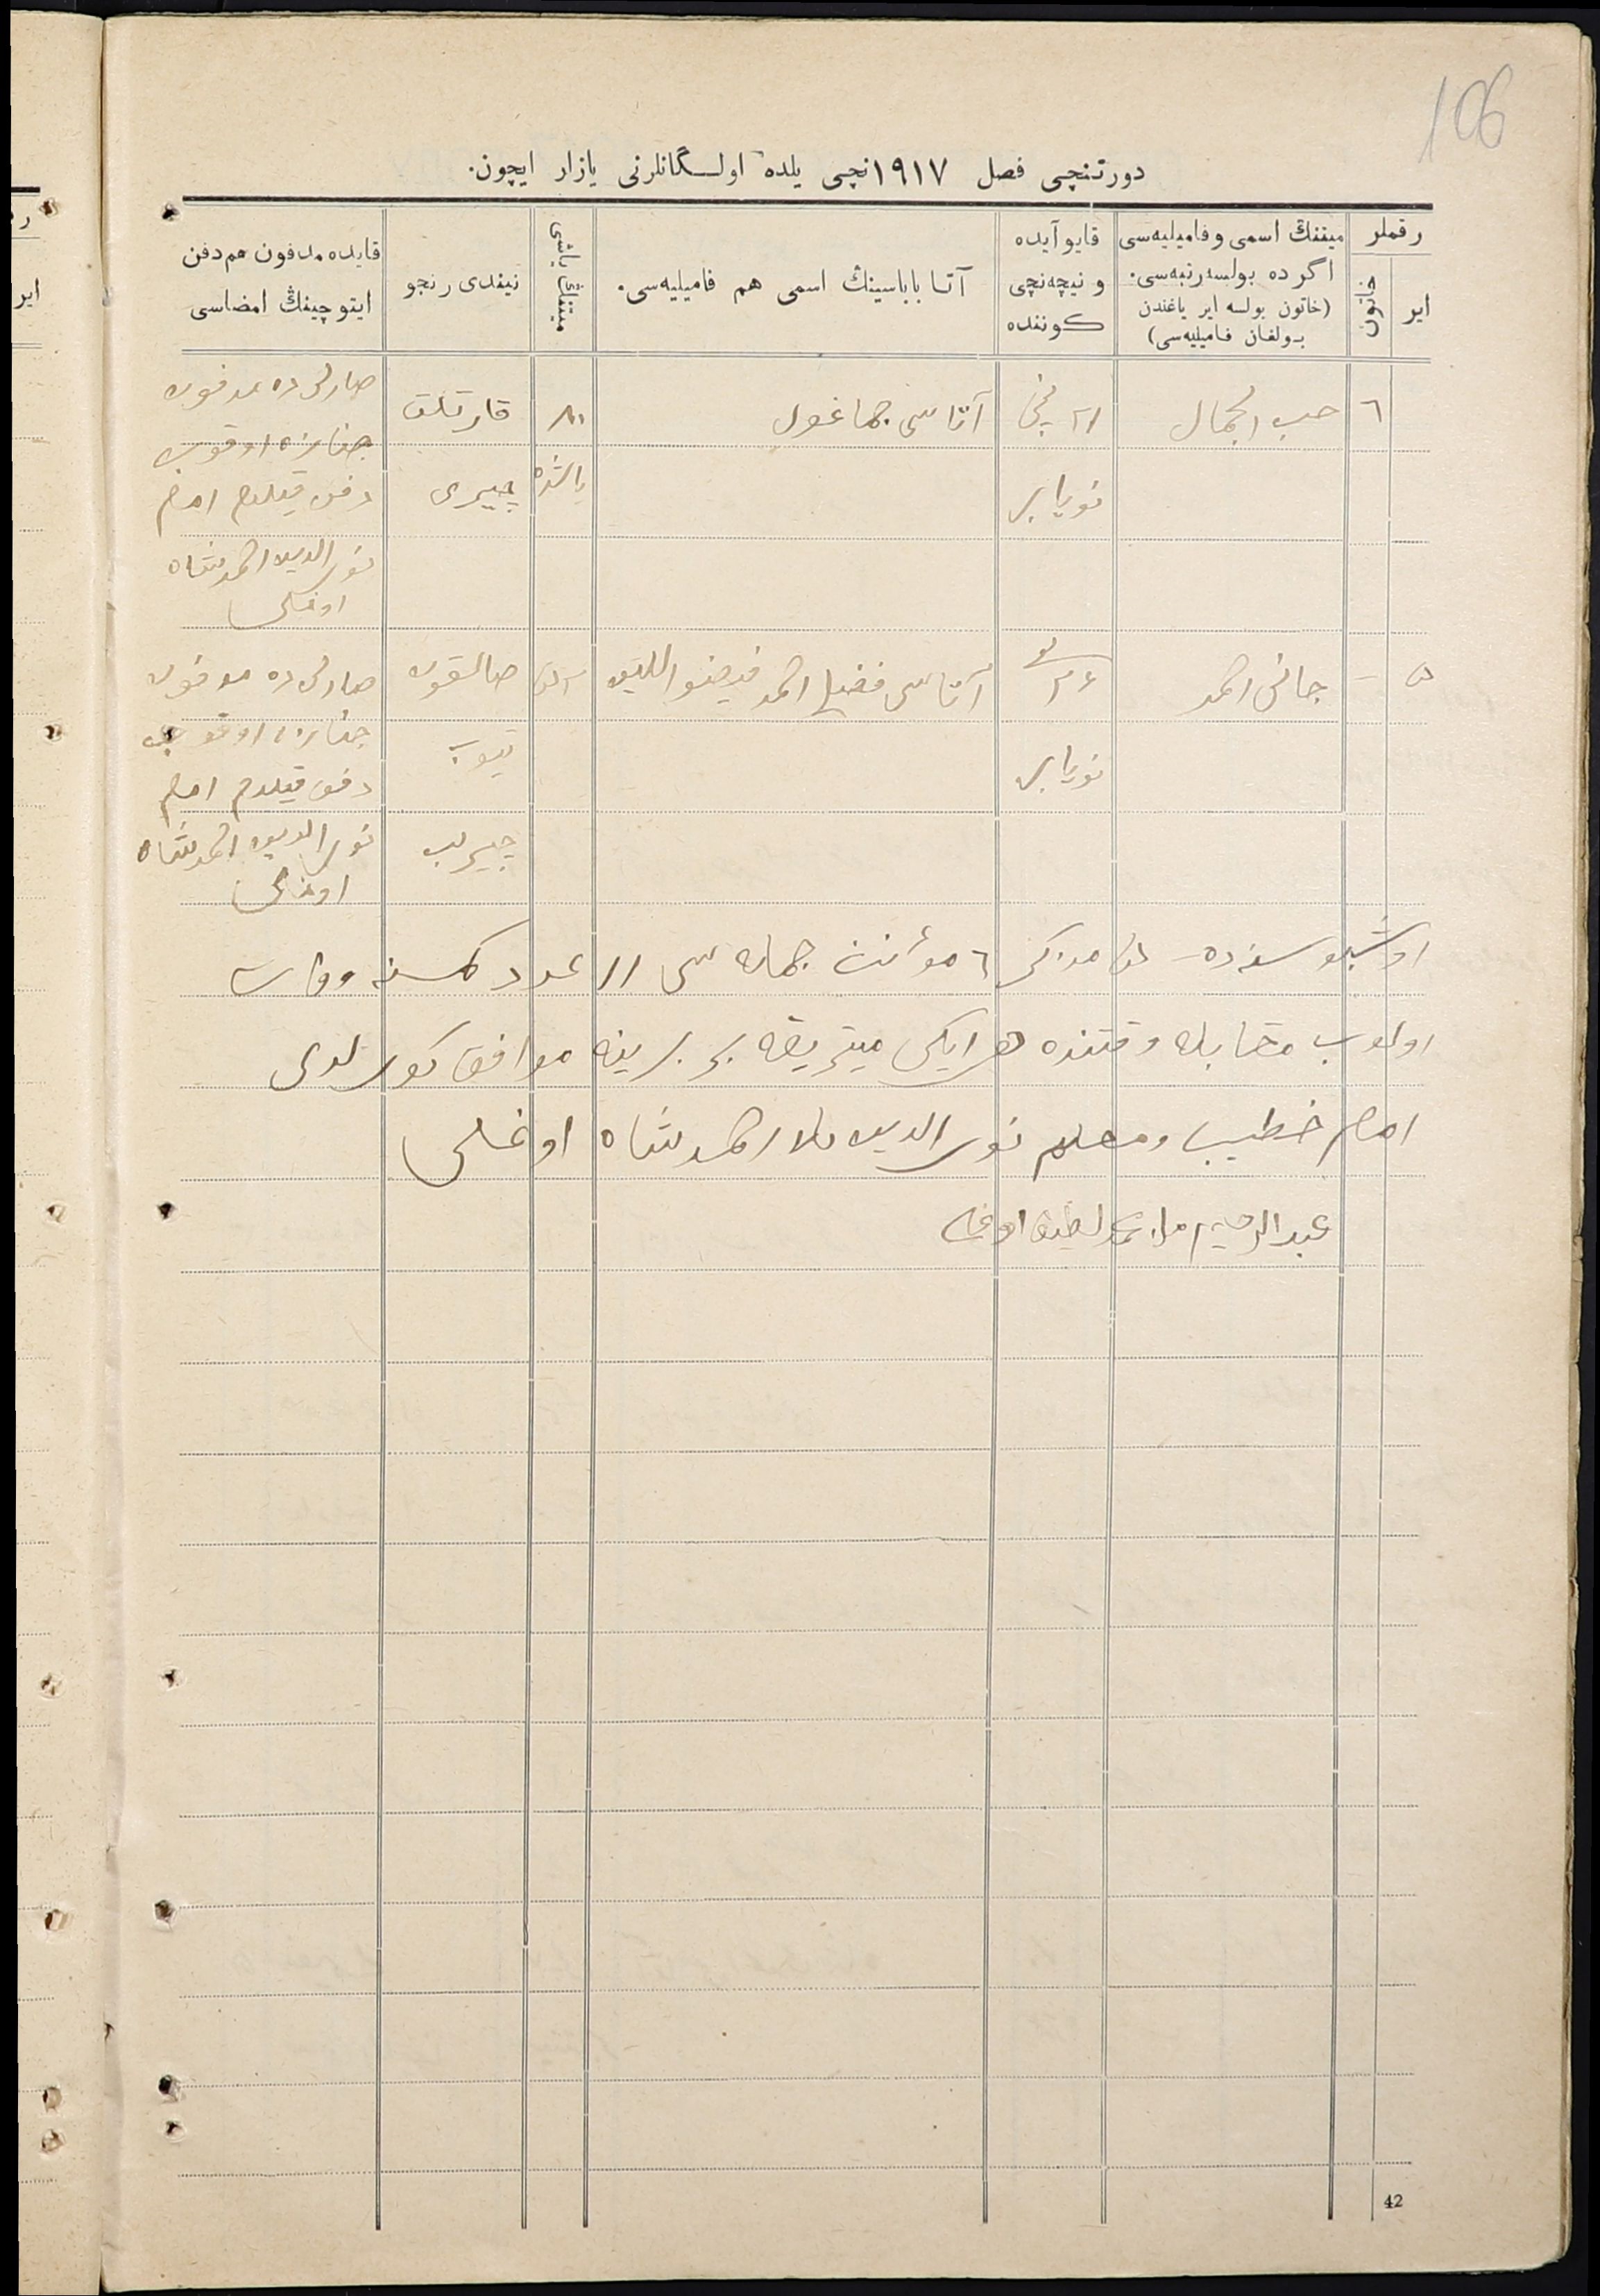 106
دورتنچی فصل ١٩١٧نچی یلده اولسگانلرنی یازار ایچون.
رقملر
ایر
خاتون
میتنڭ اسمی و فامیلیه‌سی
اگر ده بولسه رتبه‌سی.
(خاتون بولسه ایر یاغندن
بولغان فامیلیه‌سی)
قایو آیده
و نیچه‌نچی
کوننده
آتا باباسینڭ اسمی هم فامیلیه‌سی.
میتنڭ یاشی
نیندی رنجو
قایده مدفون هم دفن
ایتوچینڭ امضاسی
٦
حب الجمال
٢١ نچی
نویابر
آتاسی جماغول
٨٠
یاشده
قارتلق
چیری
ده مدفون
جنازه اوقوب
دفن قیلدم امام
نور الدین احمدشاه
اوغلی
٥
جانی احمد
٢٤
نویابر
آتاسی فضیل احمد
صالقون
تیوب
ده مدفون
جنازه اوقوب
دفن قیلدم امام
نور الدین احمدشاه
اوغلی
اوشبو سنه‌ده مذکر ٦ مؤنث جمله‌سی ١١ عدد کمسنه وفات
اولوب مقابله وقتنده هر ایکی میتریقه بر برینه موافق کورلدی
امام خطیب و معلم نور الدین ملا احمدشاه اوغلی
عبد الرحیم ملا اوغلی
42